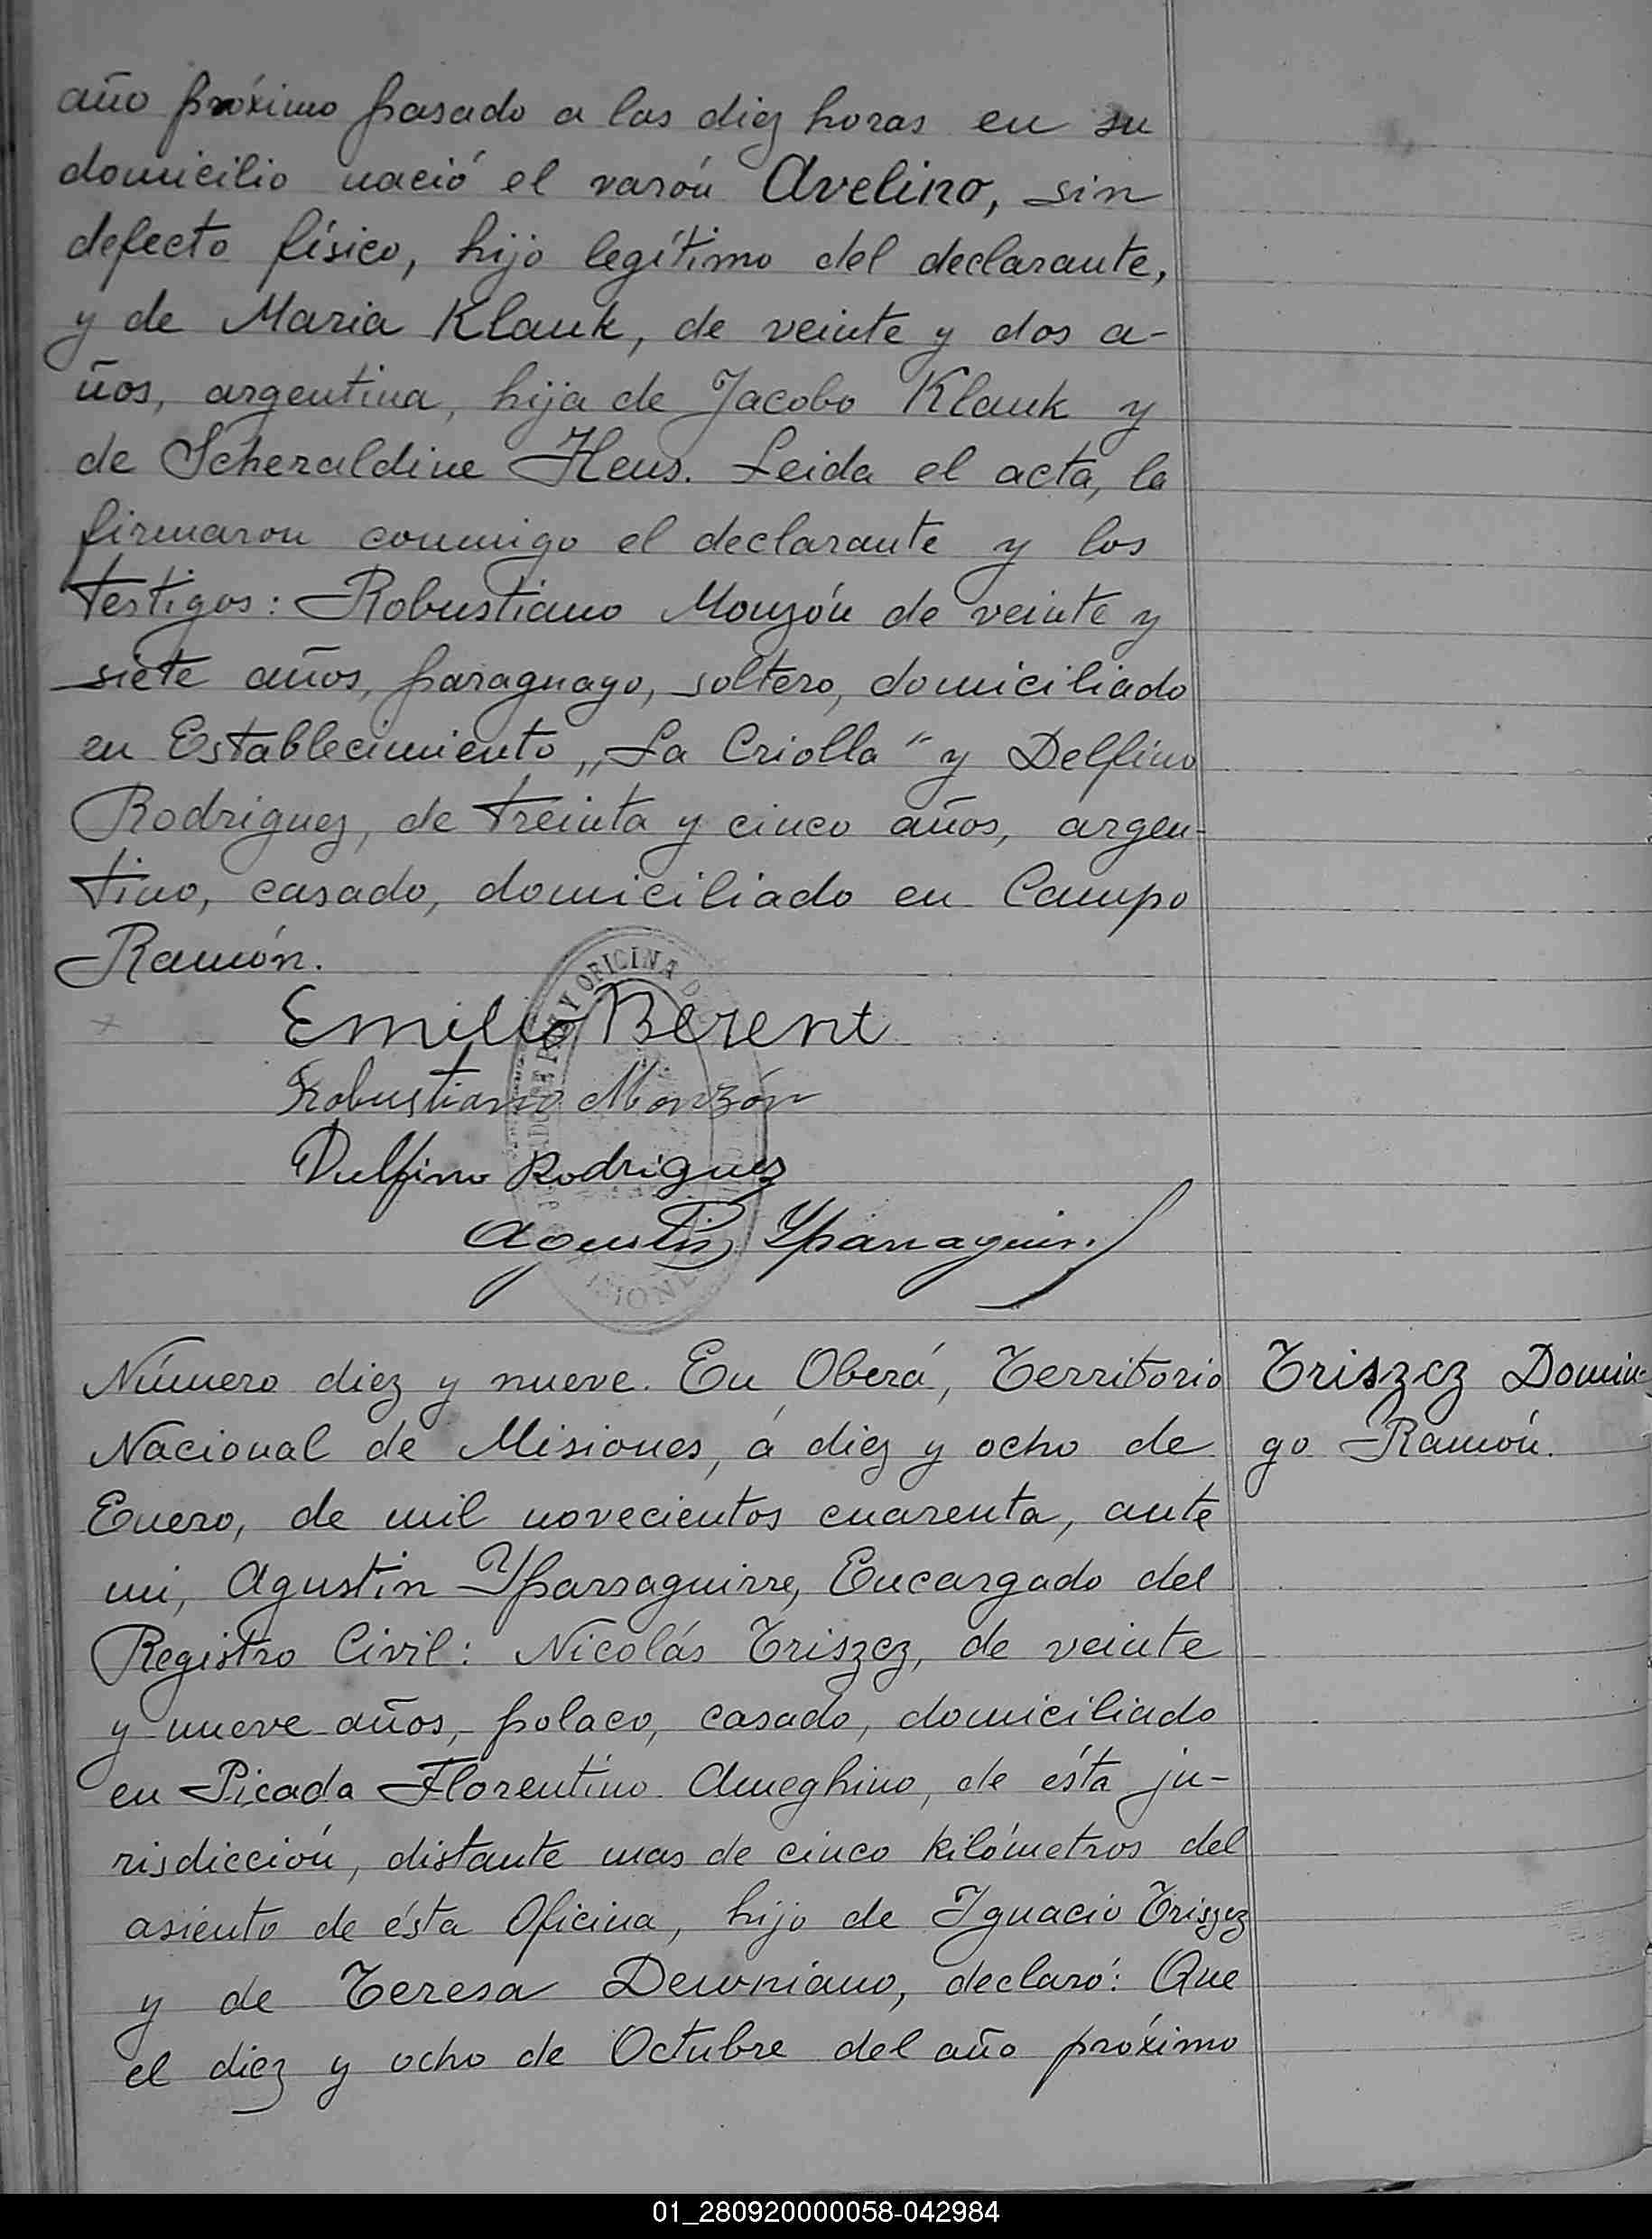 año próximo pasado a las diez horas en su
domicilio nació el varón Avelino, sin
defecto físico, hijo legítimo del declarante,
y de Maria Klauk, de veinte y dos a-
ños, argentina, hija de Jacobo Klauk y
de Scheraldine Heus. Leida el acta, la
firmaron conmigo el declarante y los
testigos: Robustiano Monzón de veinte y
siete años, paraguayo, soltero, domiciliado
en Establecimiento „La Criolla" y Delfino
Rodriguez, de treinta y cinco años, argen-
tino, casado, domiciliado en Campo
Ramón.
Emilio Berent
Robustiano Monzón
Delfino Rodriguez
Agustin Yparraguirre
Número diez y nueve. En Oberá, Territorio
Nacional de Misiones, á diez y ocho de
Enero, de mil novecientos cuarenta, ante
mi, Agustin Yparraguirre, Encargado del
Registro Civil: Nicolás Triszcz, de veinte
y nueve años, polaco, casado, domiciliado
en Picada Florentino Ameghino, de ésta ju-
risdicción, distante mas de cinco kilómetros del
asiento de ésta Oficina, hijo de Ignacio Triszcz
y de Teresa Dewniano, declaró: Que
el diez y ocho de Octubre del año próximo
Triszcz Domin-
go Ramón.
OFICINA
01_280920000058-042984